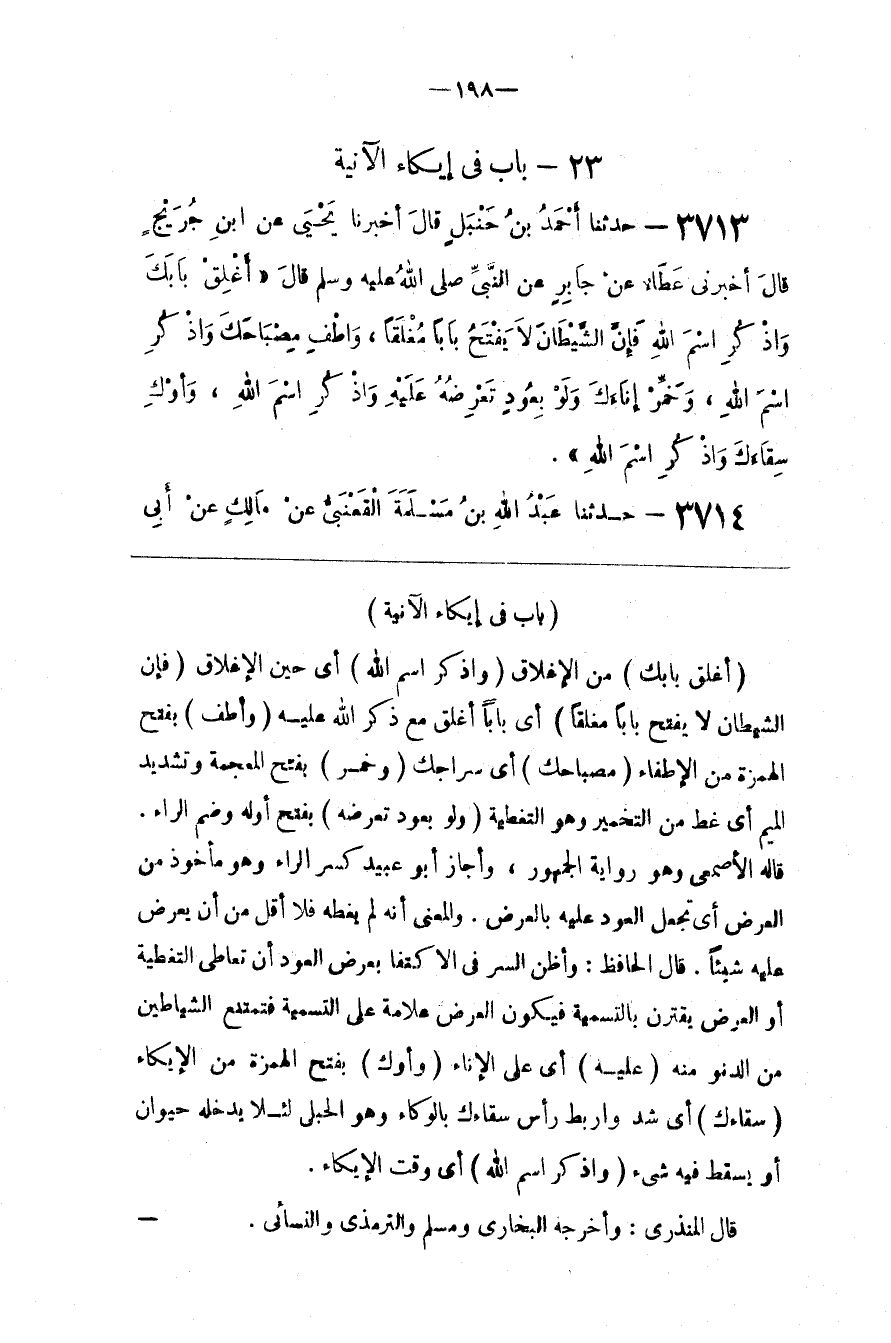 —١٩٨—
٢٣ — باب فى إيكاء الآنية
٣٧١٣ — حدثنا أَحْمَدُ بنُ حَنْبَلٍ قالَ أخبرنا يَحْيَى عن ابنِ جُرَيْجٍ
قالَ أخبرنى عَطَاءٌ عنْ جَابِرٍ عن النَّبىِّ صلى اللهُ عليه وسلم قالَ « أَغْلِقْ بَابَكَ
وَاذْكُرِ اسْمَ اللهِ فَإِنَّ الشَّيْطَانَ لاَ يَفْتَحُ بَاباً مُغْلَقاً ، وَاطْفِ مِصْبَاحَكَ وَاذْكُرِ
اسْمَ اللهِ ، وَخَمِّرْ إنَاءَكَ وَلَوْ بِعُودٍ تَعْرِضُهُ عَلَيْهِ وَاذْكُرِ اسْمَ اللهِ ، وَأَوْكِ
سِقَاءَكَ وَاذْكُرِ اسْمَ اللهِ » .
٣٧١٤ — حـدثنا عَبْدُ اللهِ بنُ مَسْـلَمَةَ الْقَعْنَبىُّ عنْ مَالِكٍ عنْ أَبِى
( باب فى إيكاء الآنية )
( أغلق بابك ) من الإغلاق ( واذكر اسم الله ) أى حين الإغلاق ( فإن
الشيطان لا يفتح باباً مغلقاً ) أى باباً أغلق مع ذكر الله عليـه ( وأطف ) بفتح
الهمزة من الإطفاء ( مصباحك ) أى سراجك ( وخمـر ) بفتح المعجمة وتشديد
الميم أى غط من التخمير وهو التغطية ( ولو بعود تعرضه ) بفتح أوله وضم الراء .
قاله الأصمعى وهو رواية الجمهور ، وأجاز أبو عبيد كسر الراء وهو مأخوذ من
العرض أى تجعل العود عليه بالعرض . والمعنى أنه لم يغطه فلا أقل من أن يعرض
عليه شيئاً . قال الحافظ : وأظن السر فى الاكتفا بعرض العود أن تعاطى التغطية
أو العرض يقترن بالتسمية فيكون العرض علامة على التسمية فتمتنع الشياطين
من الدنو منه ( عليـه ) أى على الإناء ( وأوك ) بفتح الهمزة من الإيكاء
( سقاءك ) أى شد واربط رأس سقاءك بالوكاء وهو الحبلى لئـلا يدخله حيوان
أو يسقط فيه شىء ( واذكر اسم الله ) أى وقت الإيكاء .
قال المنذرى : وأخرجه البخارى ومسلم والترمذى والنسائى . —